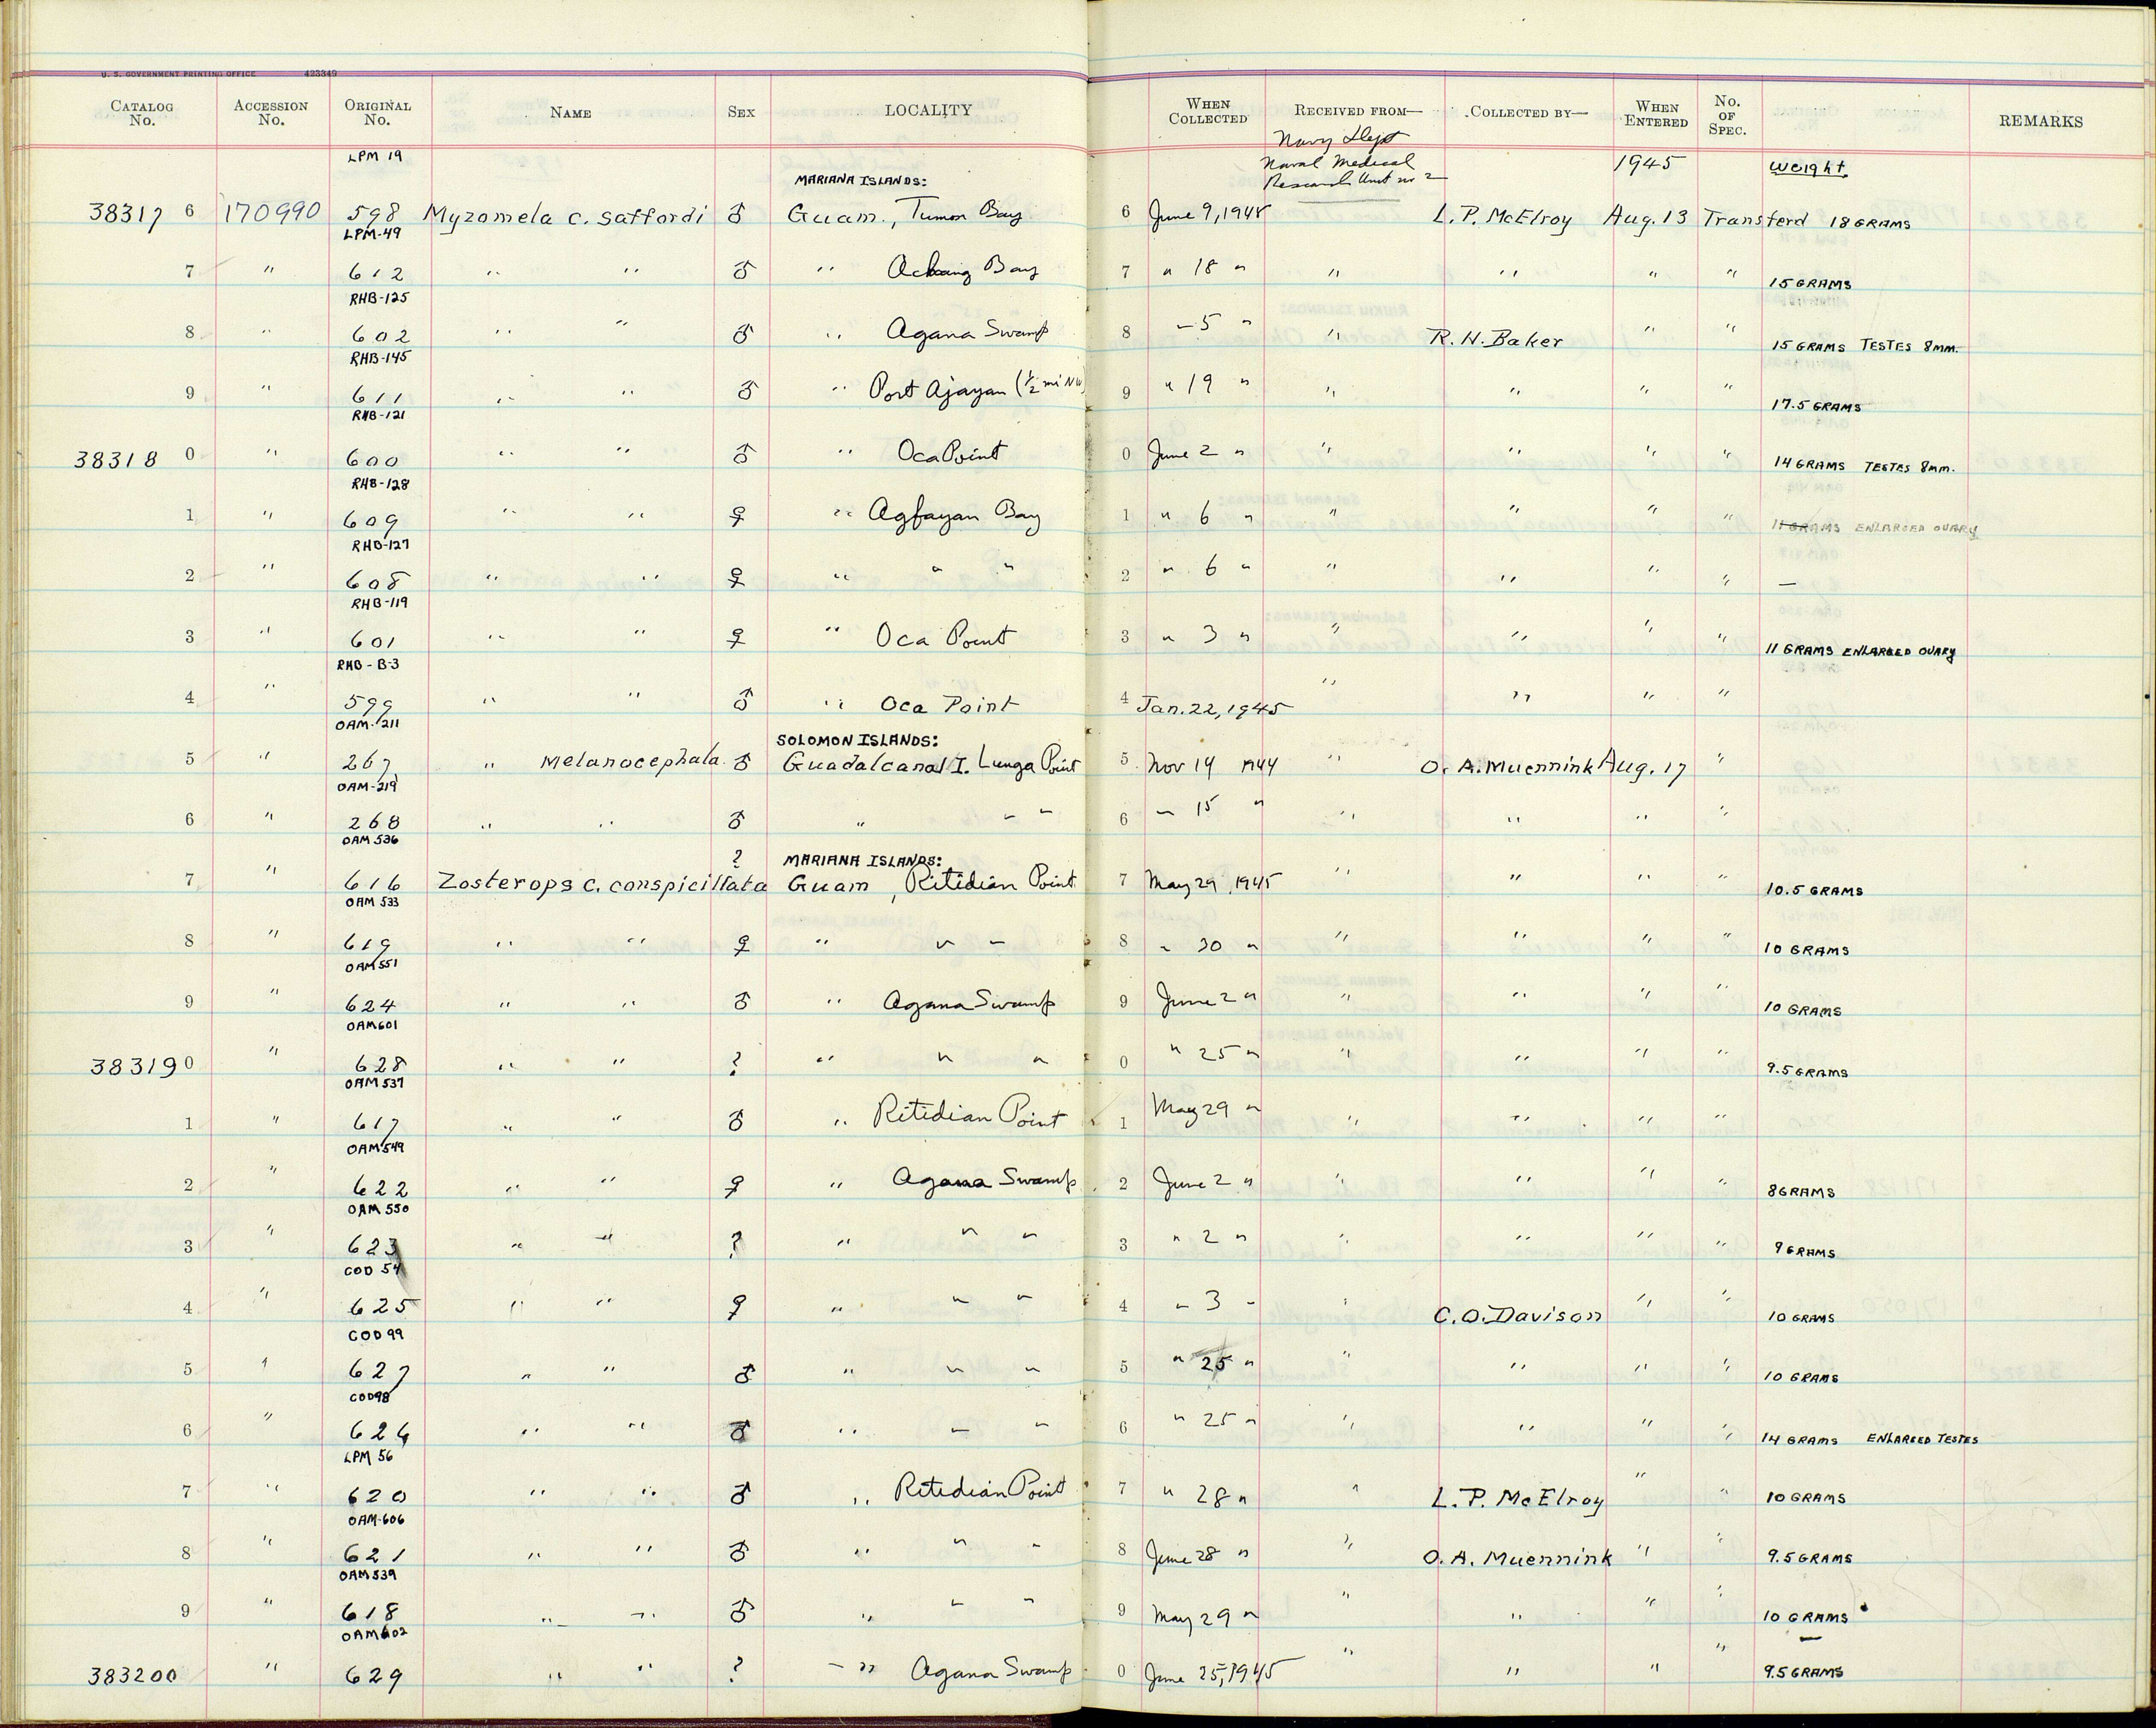 U. S. GOVERNMENT PRINTING OFFICE 423349
CATALOG No. ACCESSION No. ORIGINAL No. NAME SEX LOCALITY WHEN COLLECTED RECEIVED FROM— COLLECTED BY— WHEN ENTERED No. OF SPEC. REMARKS
Navy Dept
LPM 19 Naval Medical 1945 Weight
MARIANA ISLANDS: Research Unit no 2
38317 6 170990 598 Myzomela c. saffordi ♂ Guam, Tumon Bay 6 June 9, 1945 L. P. McElroy Aug. 13 Transferd 18 GRAMS
LPM-49
7 " 612 " " ♂ " Achang Bay 7 " 18 " " " " " 15 GRAMS
RHB-125
8 " 602 " " ♂ " Agana Swamp 8 " 5 " " R. H. Baker " " 15 GRAMS TESTES 8mm.
RHB-145
9 " 611 " " ♂ " Port Ajayan (½ mi NW) 9 " 19 " " " " " 17.5 GRAMS
RHB-121
38318 0 " 600 " " ♂ " Oca Point 0 June 2 " " " " " 14 GRAMS TESTES 8mm.
RHB-128
1 " 609 " " ♀ " Agfayan Bay 1 " 6 " " " " " 11 GRAMS ENLARGED OVARY
RHB-127
2 " 608 " " ♀ " " " 2 " 6 " " " " " —
RHB-119
3 " 601 " " ♀ " Oca Point 3 " 3 " " " " " 11 GRAMS ENLARGED OVARY
RHB-B-3
4 " 599 " " ♂ " Oca Point 4 Jan. 22, 1945 " " " "
OAM-211
SOLOMON ISLANDS:
5 " 267 " Melanocephala ♂ Guadalcanal I. Lunga Point 5 Nov 14 1944 " O. A. Muennink Aug. 17 "
OAM-219
6 " 268 " " ♂ " " " 6 " 15 " " " " "
OAM 536
MARIANA ISLANDS:
7 " 616 Zosterops c. conspicillata ? Guam, Ritidian Point 7 May 29, 1945 " " " " 10.5 GRAMS
OAM 533
8 " 619 " " ♀ " " " 8 " 30 " " " " " 10 GRAMS
OAM 551
9 " 624 " " ♂ " Agana Swamp 9 June 2 " " " " " 10 GRAMS
OAM 601
38319 0 " 628 " " ? " " " 0 " 25 " " " " " 9.5 GRAMS
OAM 537
1 " 617 " " ♂ " Ritidian Point 1 May 29 " " " " "
OAM 549
2 " 622 " " ♀ " Agana Swamp 2 June 2 " " " " " 8 GRAMS
OAM 550
3 " 623 " " ? " " " 3 " 2 " " " " " 9 GRAMS
COD 54
4 " 625 " " ♀ " " " 4 " 3 " " C. O. Davison " " 10 GRAMS
COD 99
5 " 627 " " ♂ " " " 5 " 25 " " " " " 10 GRAMS
COD 98
6 " 626 " " ♂ " " " 6 " 25 " " " " " 14 GRAMS ENLARGED TESTES
LPM 56
7 " 620 " " ♂ " Ritidian Point 7 " 28 " " L. P. McElroy " " 10 GRAMS
OAM-606
8 " 621 " " ♂ " " " 8 June 28 " " O. A. Muennink " " 9.5 GRAMS
OAM 539
9 " 618 " " ♂ " " " 9 May 29 " " " " " 10 GRAMS
OAM 602
38320 0 " 629 " " ? " Agana Swamp 0 June 25, 1945 " " " " 9.5 GRAMS